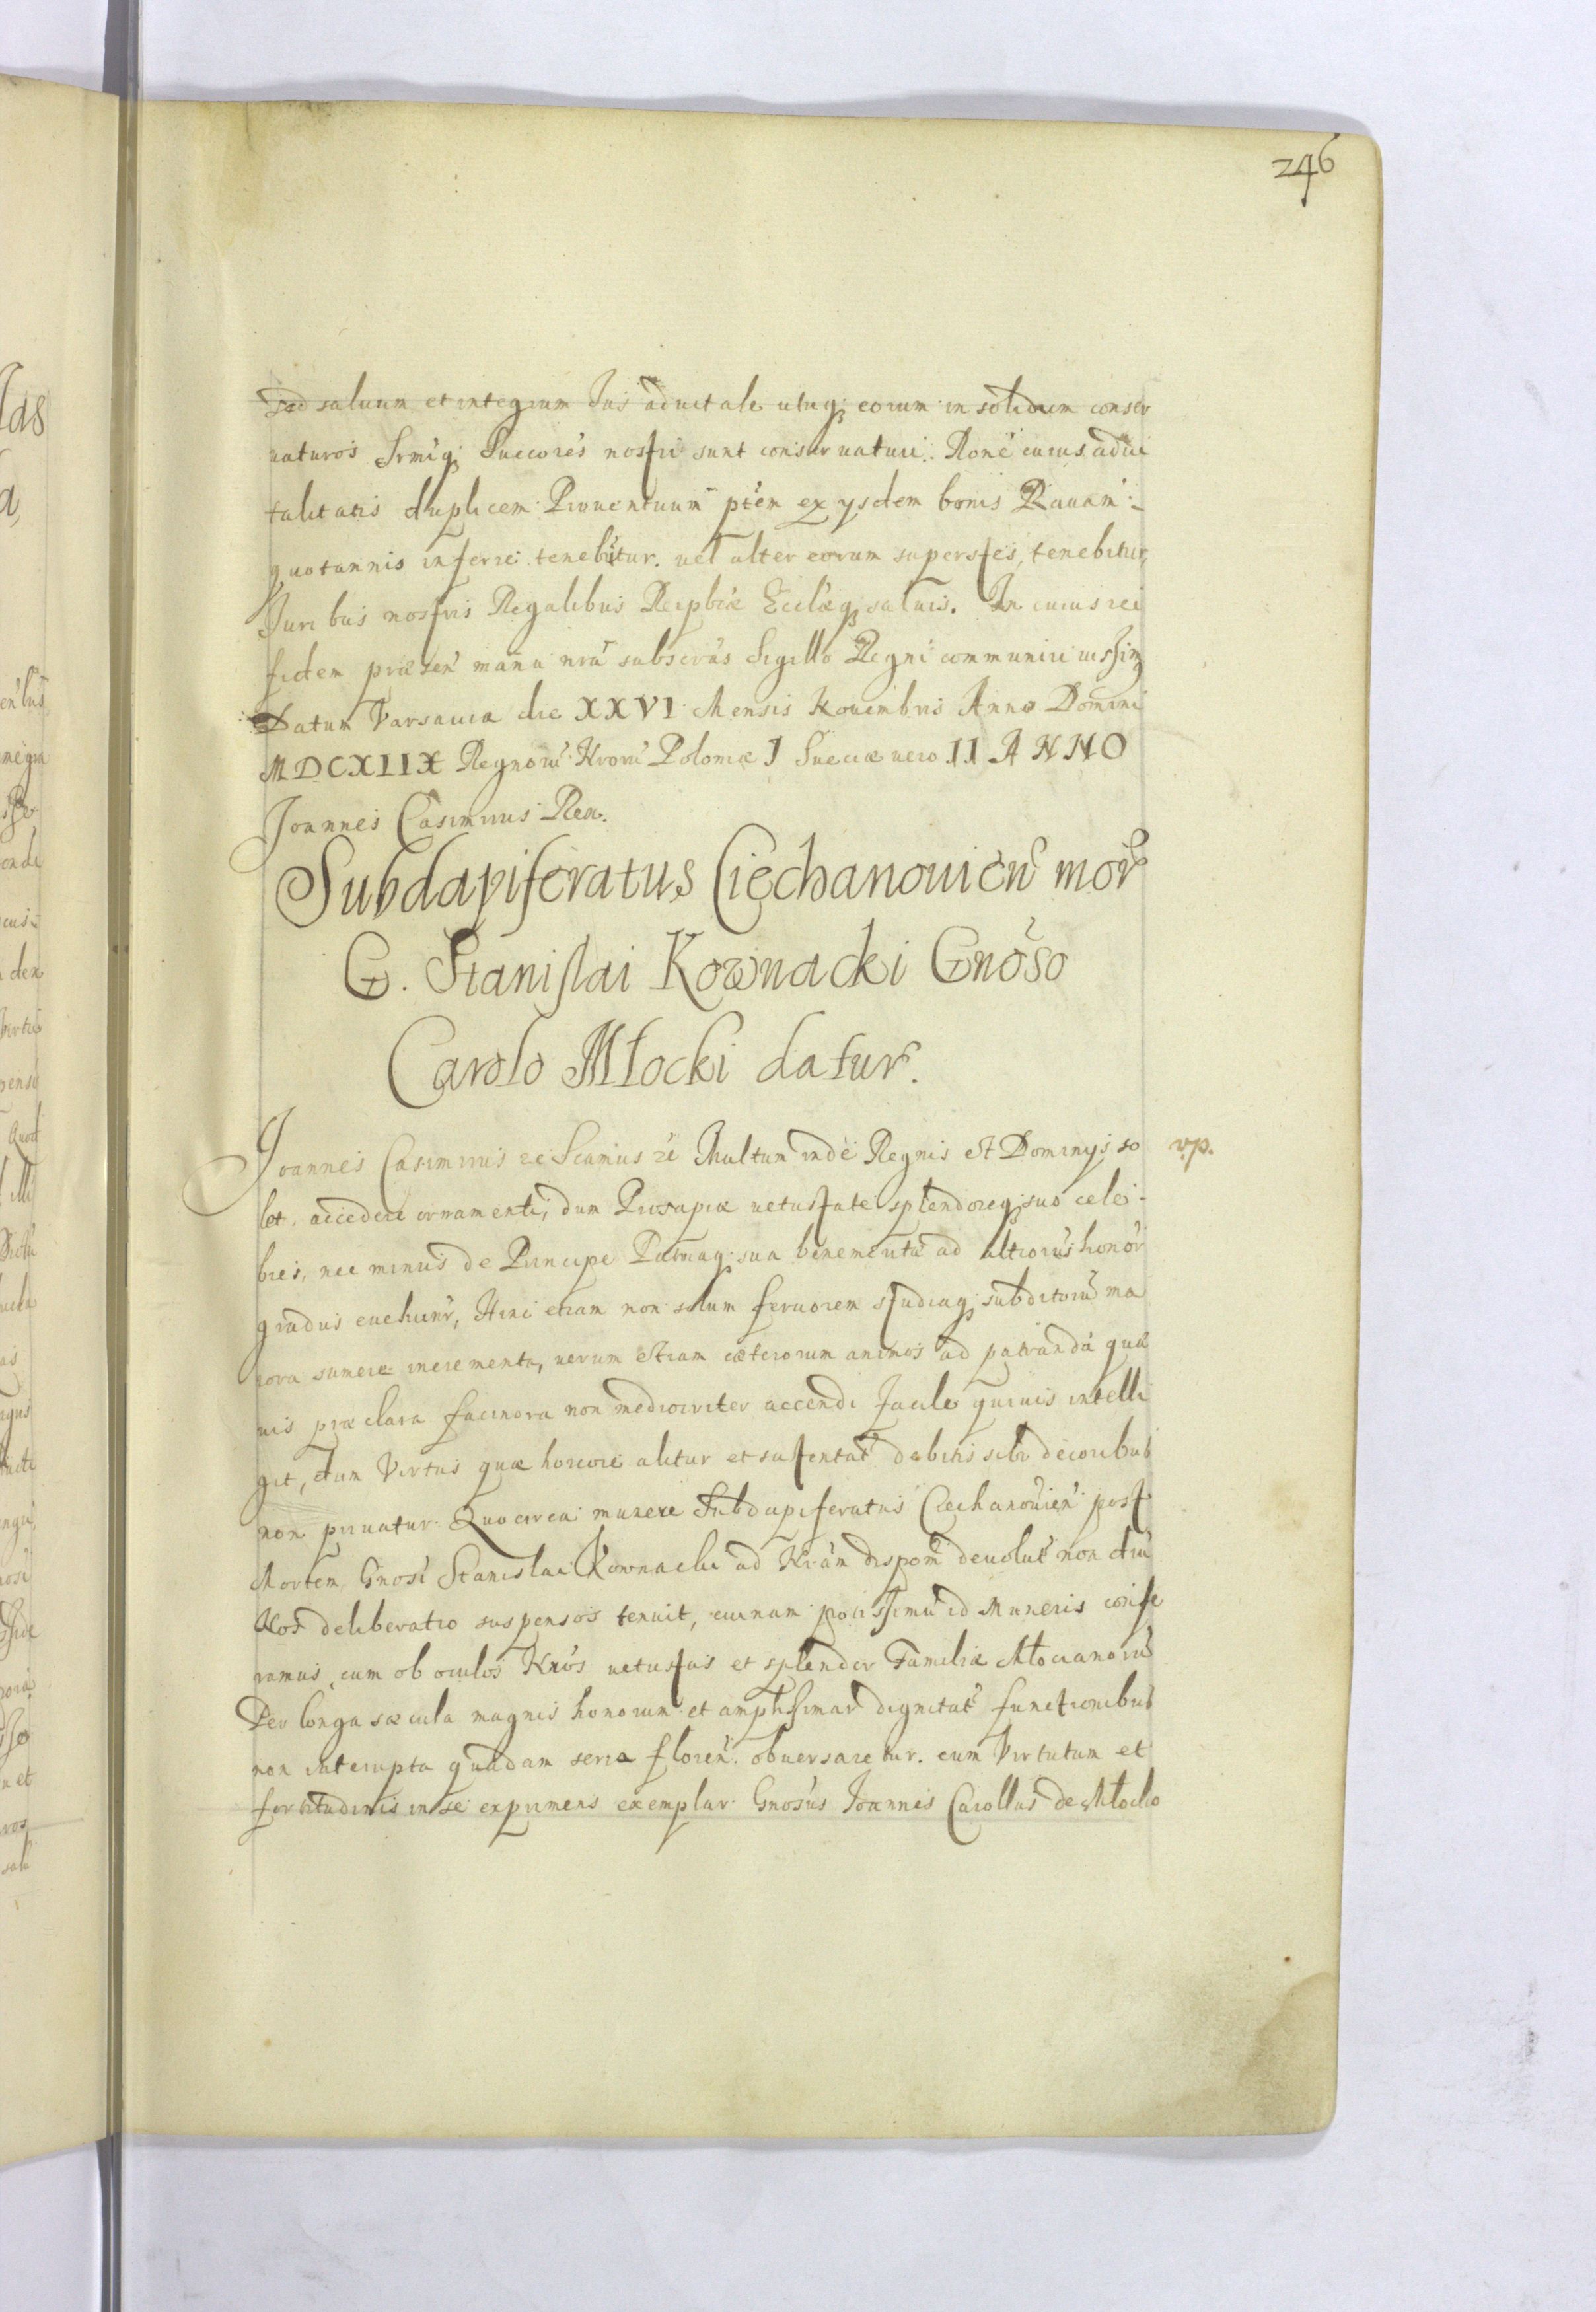 246
sed saluum et integrum Jus aduitale utriq; eorum in solidum conser
uaturos Srmiq; Succores nostri sunt conseruaturi. Rone cuius adui
talitatis duplicem Prouentuum ptem ex ysdem bonis Rauam:
quotannis inferre tenebūtur. uel alter eorum superstes, tenebitur,
Juribus nostris Regalibus Reipblicæ Eccliæq; saluis. In cuius rei
fidem præsen manu nrā subscrās Sigillo Regni communiri iussim9
Datum Varsauiæ die XXVI Mensis Nouembris Anno Domini
MDCXLIIX Regnorū Nrorū Poloniæ I Sueciæ uero II ANNO
Joannes Casimirus Rex.
Subdapiferatus Ciechanouien mor
G. Stanislai Kownacki Gnoso
Carolo Młocki datur.
Joannes Casimirus etc Scamus etc Multum inde Regnis et Dominys so
let, accedere ornamenti, dum Prosapiæ uetustate splendoreq; suo cele-
v.p.
bres, nec minus de Principe Patriaq; sua benemeriti ad altiorūs honor
gradus euehunr, Hinc etiam non solum feruorem studiaq; subditorū ma
iora sumere incrementa, uerum etiam cæterorum animos ad patranda quæ
uis præclara facinora non mediocriter accendi facile quiuis intelli
git, dum Virtus quæ honore alitur et sustentat debitis sibi decoribus
non priuatur. Quocirca munere Subdapiferatus Ciechanouien post
Mortem Gnosi Stanislai Kownacki ad Nram dispom deuolut non diu
Nos deliberatio suspensos tenuit, cuinam potissimū id Muneris confe
ramus, cum ob oculos Nros uetustas et splendor Familiæ Młocianorū
Per longa sæcula magnis honorum et amplissimar dignitat functionibus
non interupta quadam serie floren. obuersaretur. cum Virtutum et
fortitudinis in se exprimens exemplar Gnosus Joannes Carollus de Młocko